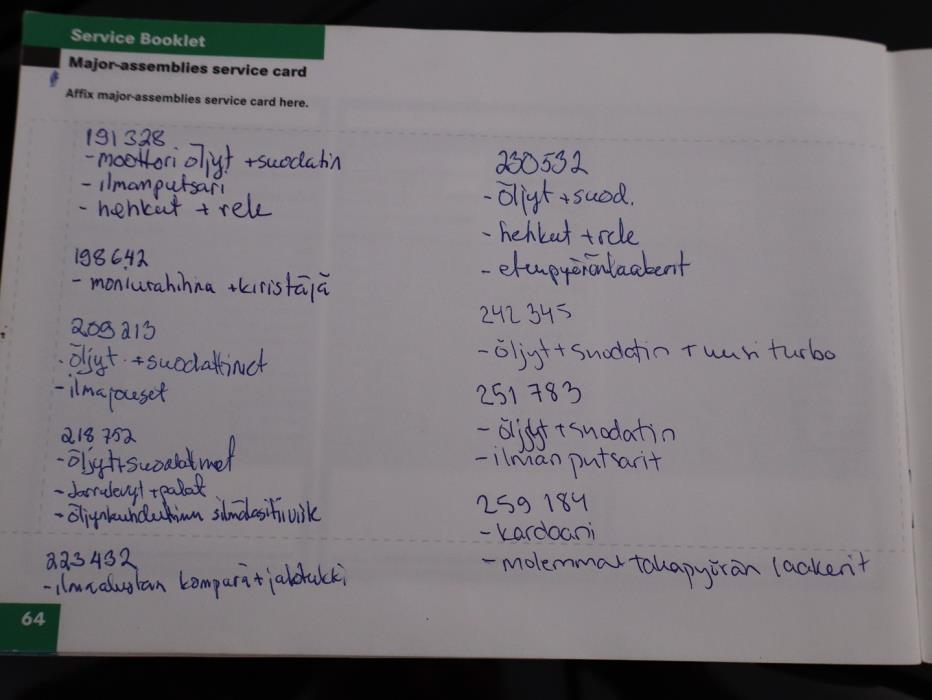 Service Booklet
Major-assemblies service card
Affix major-assemblies service card here.
191 328
- moottori öljyt + suodatin
- ilmanputsari
- hehkut + rele
198642
- moniurahihna + kiristäjä
209 213
- öljyt + suodattimet
- ilmajouset
218 752
- öljyt + suodatimet
- Jarrulevyt + palat
- öljynlauhduttimen
223 432
- ilmaalustan kompura + jakotukki
230532
- öljyt + suod.
- hehkut + rele
- etupyöränlaakerit
242 345
- öljyt + suodatin + uusi turbo
251 783
- öljyt + suodatin
- ilman putsarit
259 184
- kardaani
- molemmat takapyörän laakerit
64